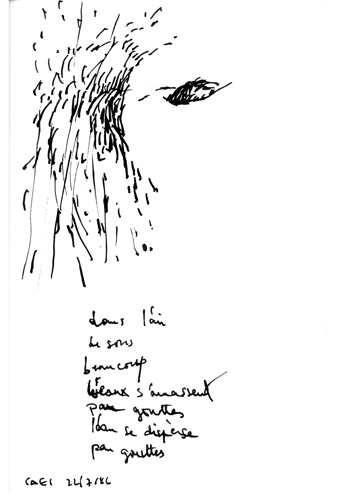 dans l'air
le sons
beaucoup
bleaux s'amassent
par gouttes
l'eau se disperse
par gouttes
CAEI 22/7/86